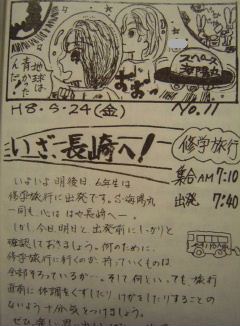 地球は
青かった
んだ!
おぉ〜
スペース
海陽丸
H8.5.24(金)
No.11
いざ、長崎へ!
修学旅行
集合AM7:10
出発 7:40
いよいよ明後日、6年生は
修学旅行に出発です。S・海陽丸
一同も、心は はや長崎へ―。
しかし今日明日と出発前にしっかりと
確認しておきましょう。何のために、
修学旅行に行くのか。持っていくものは
全部そろっているか…。そして何といっても旅行
直前に体調をくずしたり けがをしたりすることの
ないよう十分気をつけましょう。